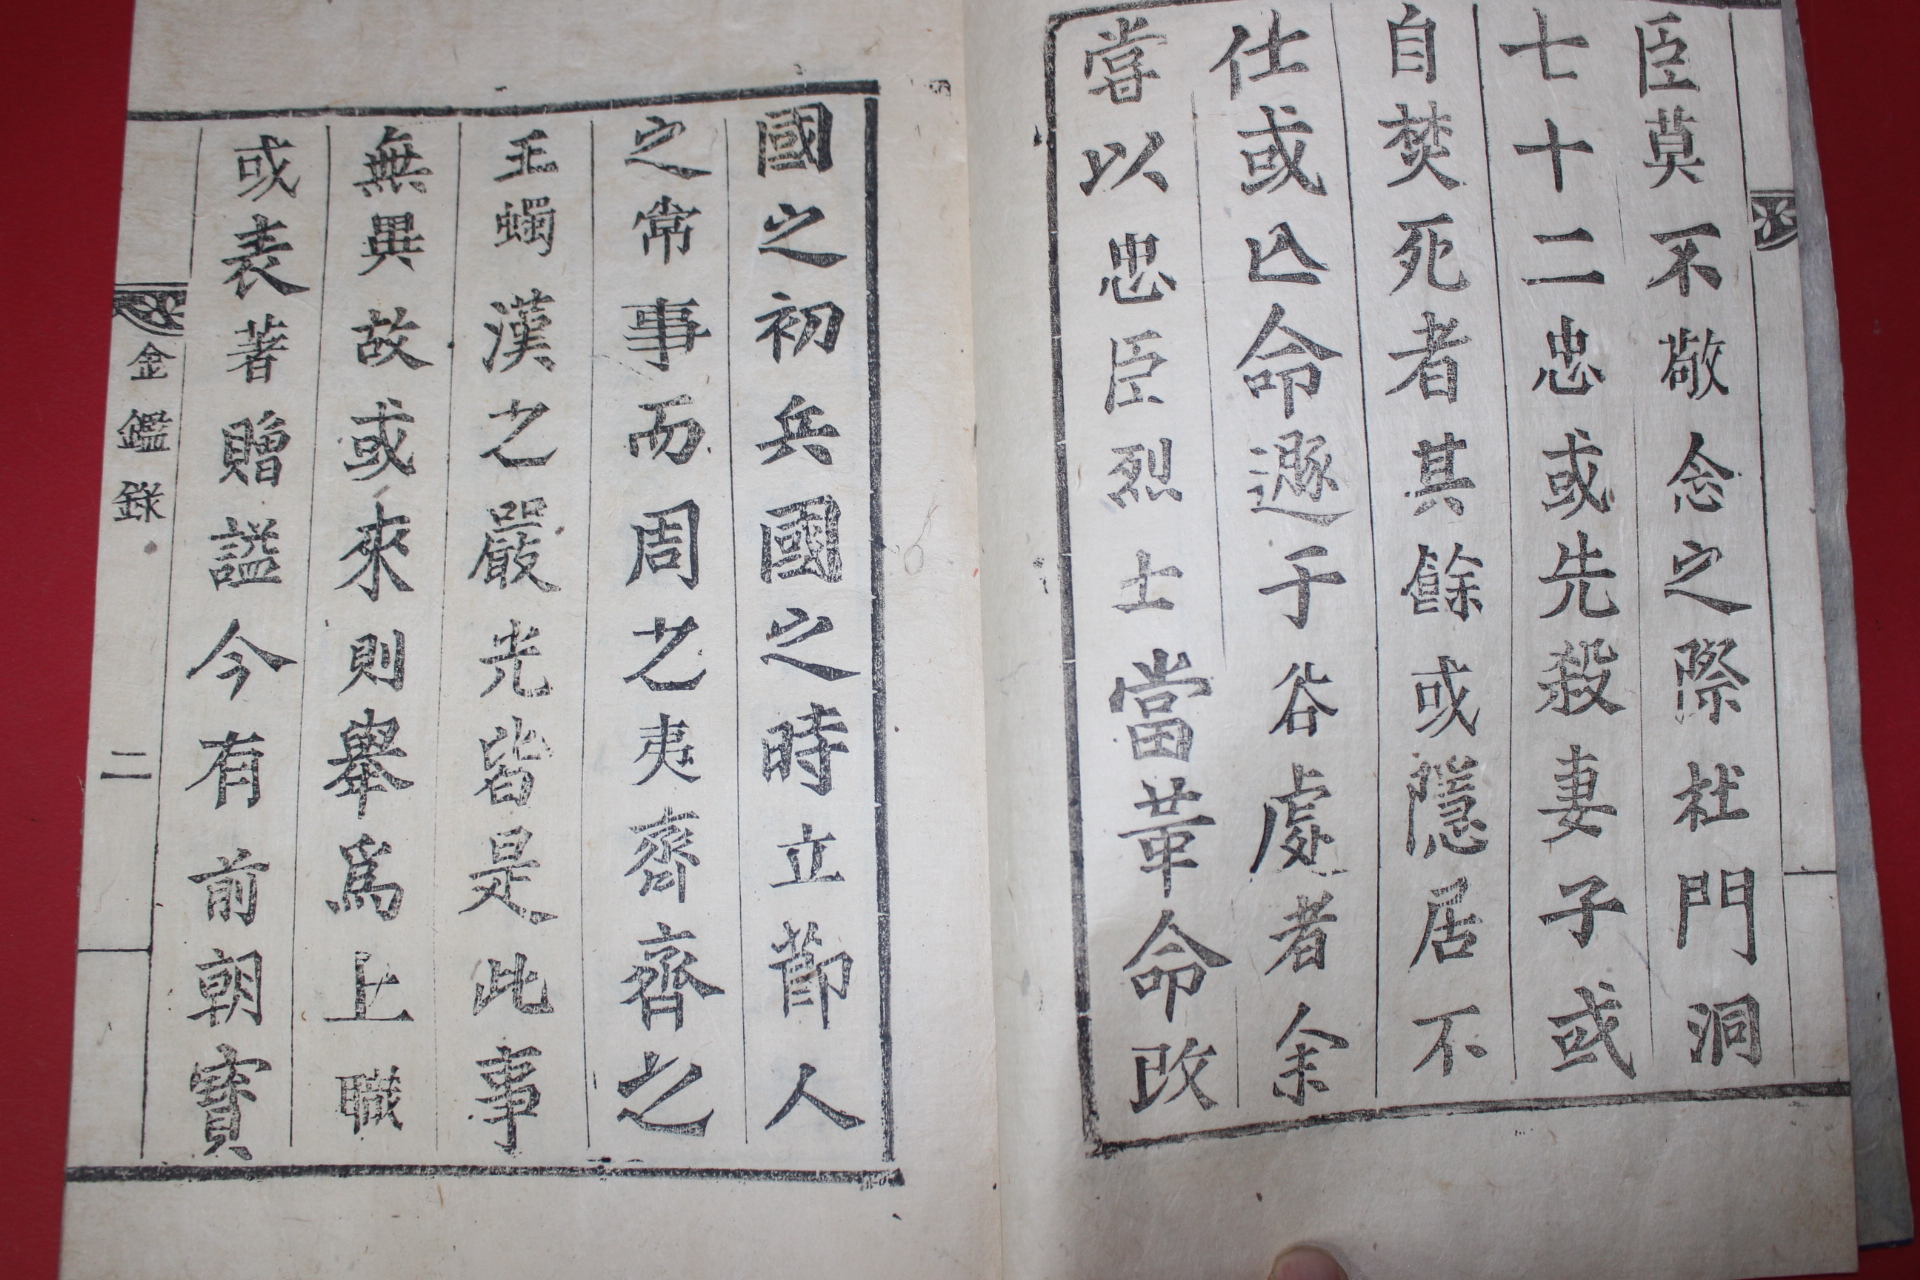 臣莫不敬念之際杜門洞
七十二忠或先殺妻子或
自焚死者其餘或隱居不
仕或亾命遯于谷處者余
嘗以忠臣烈士當革命改
國之初兵國之時立節人
之常事而周之夷齊齊之
王蠋漢之嚴光皆是此事
無異故或來則舉爲上職
或表著贈謚今有前朝寶
金鑑錄
二